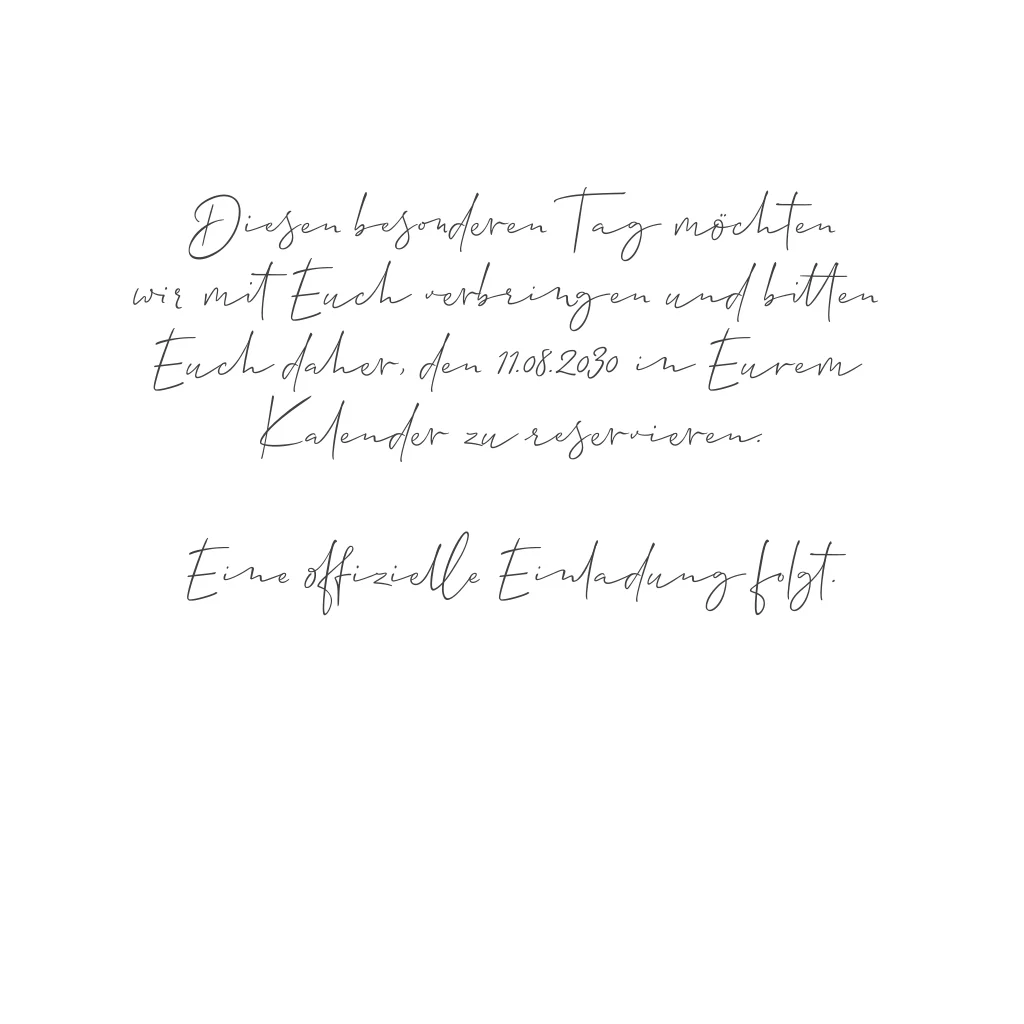 Diesen besonderen Tag möchten
wir mit Euch verbringen und bitten
Euch daher, den 11.08.2030 in Eurem
Kalender zu reservieren.
Eine offizielle Einladung folgt.